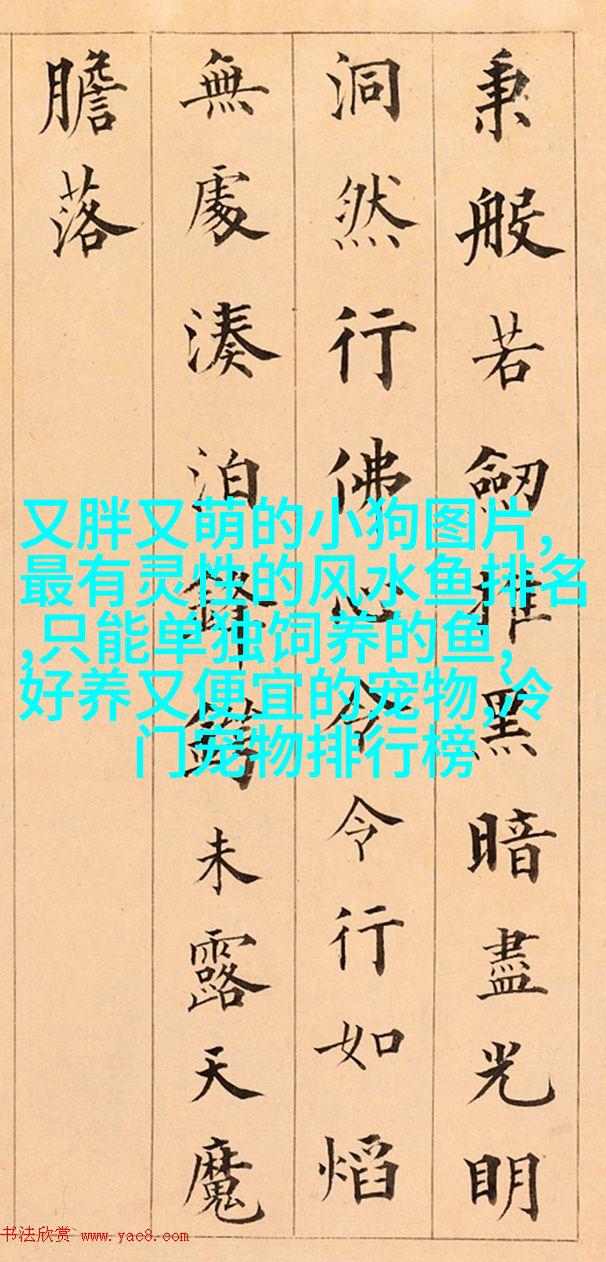 秉般若劒摧黑暗盡光明
洞然行佛心令令行如熖
無處湊泊鋒鍔未露天魔
膽落
又胖又萌的小狗图片,
最有灵性的风水鱼排名
,只能单独饲养的鱼,
好养又便宜的宠物,冷
门宠物排行榜
书法欣赏 www.yac8.com